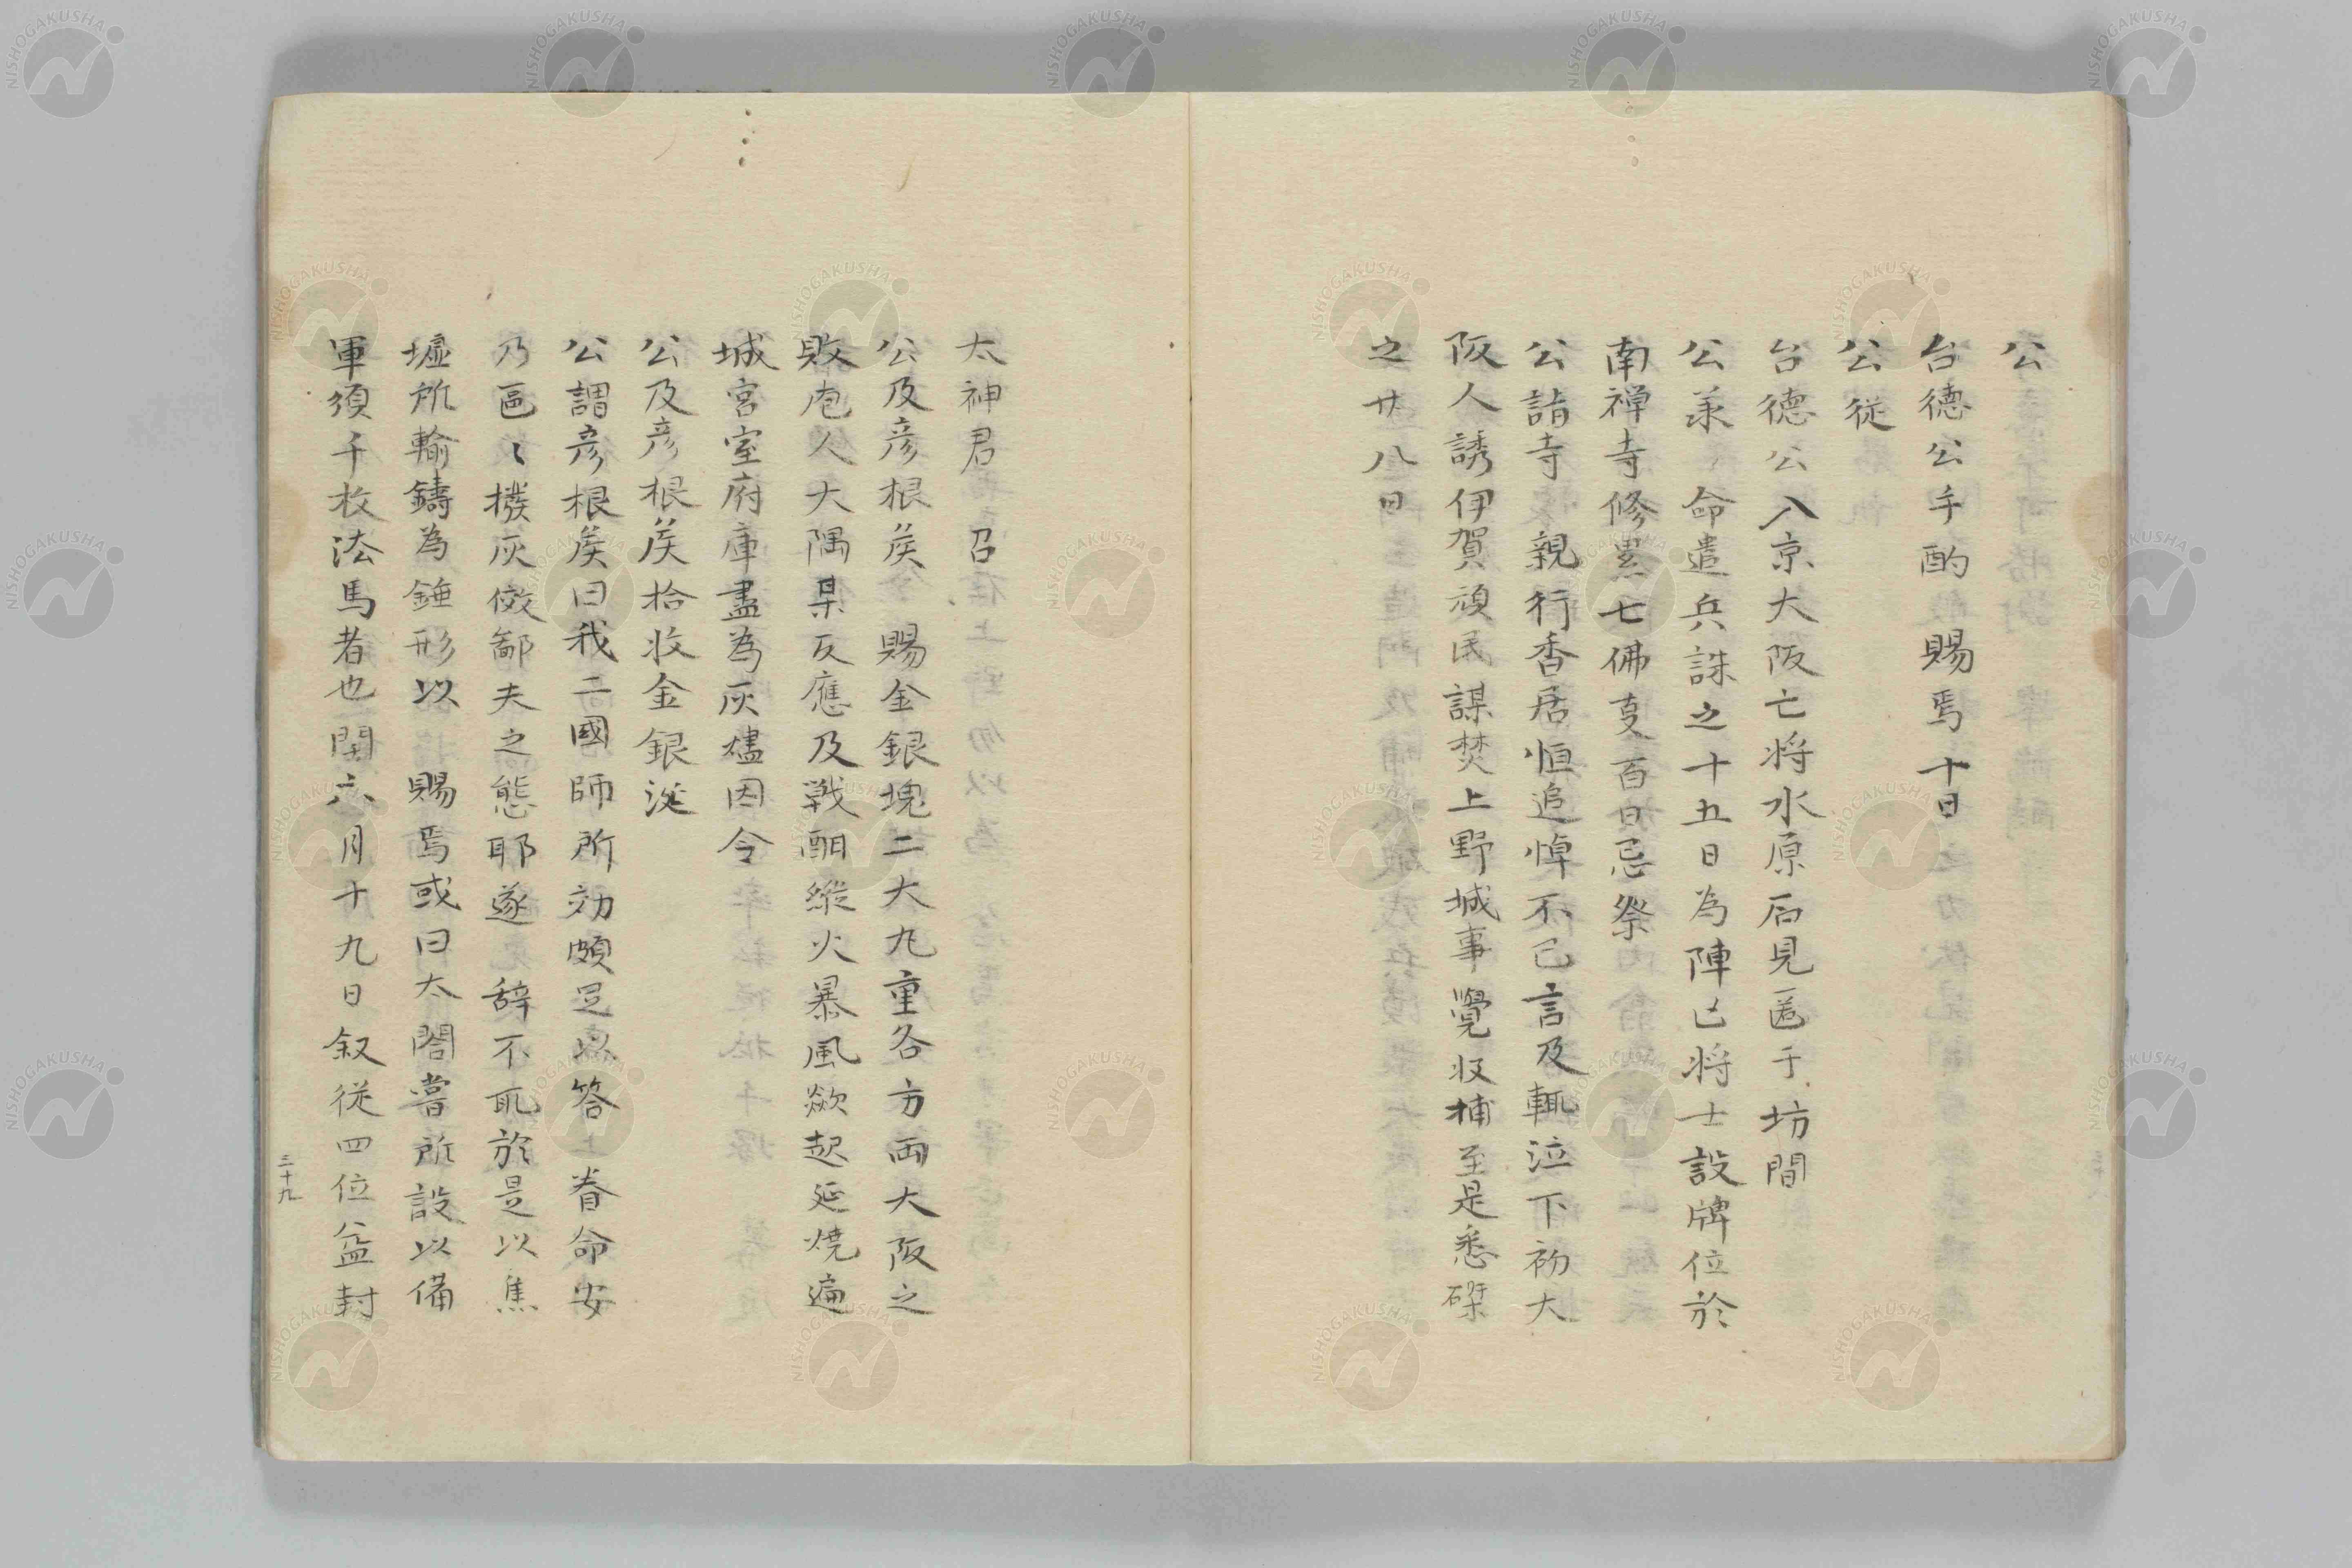 公
台德公手酌　賜焉十日
公従
台德公入京大阪亡将水原石見匿于坊間
公承　命遣兵誅之十五日為陣亡将士設牌位於
南禅寺修累七佛叓百日忌祭
公詣寺　親行香居恒追悼不已言及輒泣下初大
阪人誘伊賀頑民謀焚上野城事覺收捕至是悉磔
之廿八日
太神君　召
公及彦根矦　賜金銀塊二大九重各方両大阪之
敗庖人大隅某反應及戦酣縦火暴風歘起延焼遍
城宮室府庫盡為灰燼因令
公及彦根矦拾收金銀涎
公謂彦根矦曰我二國師所効頗足以答上眷命安
乃區〻撥灰傚鄙夫之態耶遂　辞不取於是以焦
墟所輸鑄為錘形以　賜焉或曰太閤嘗所設以備
軍須千枚法馬者也閏六月十九日叙従四位益封
三十九
NISHOGAKUSHA